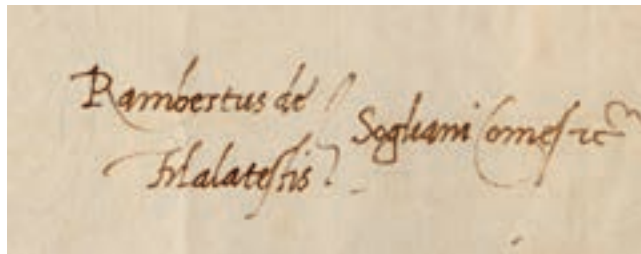 Rambertus de
Malatestis
Sogliani Comes &c